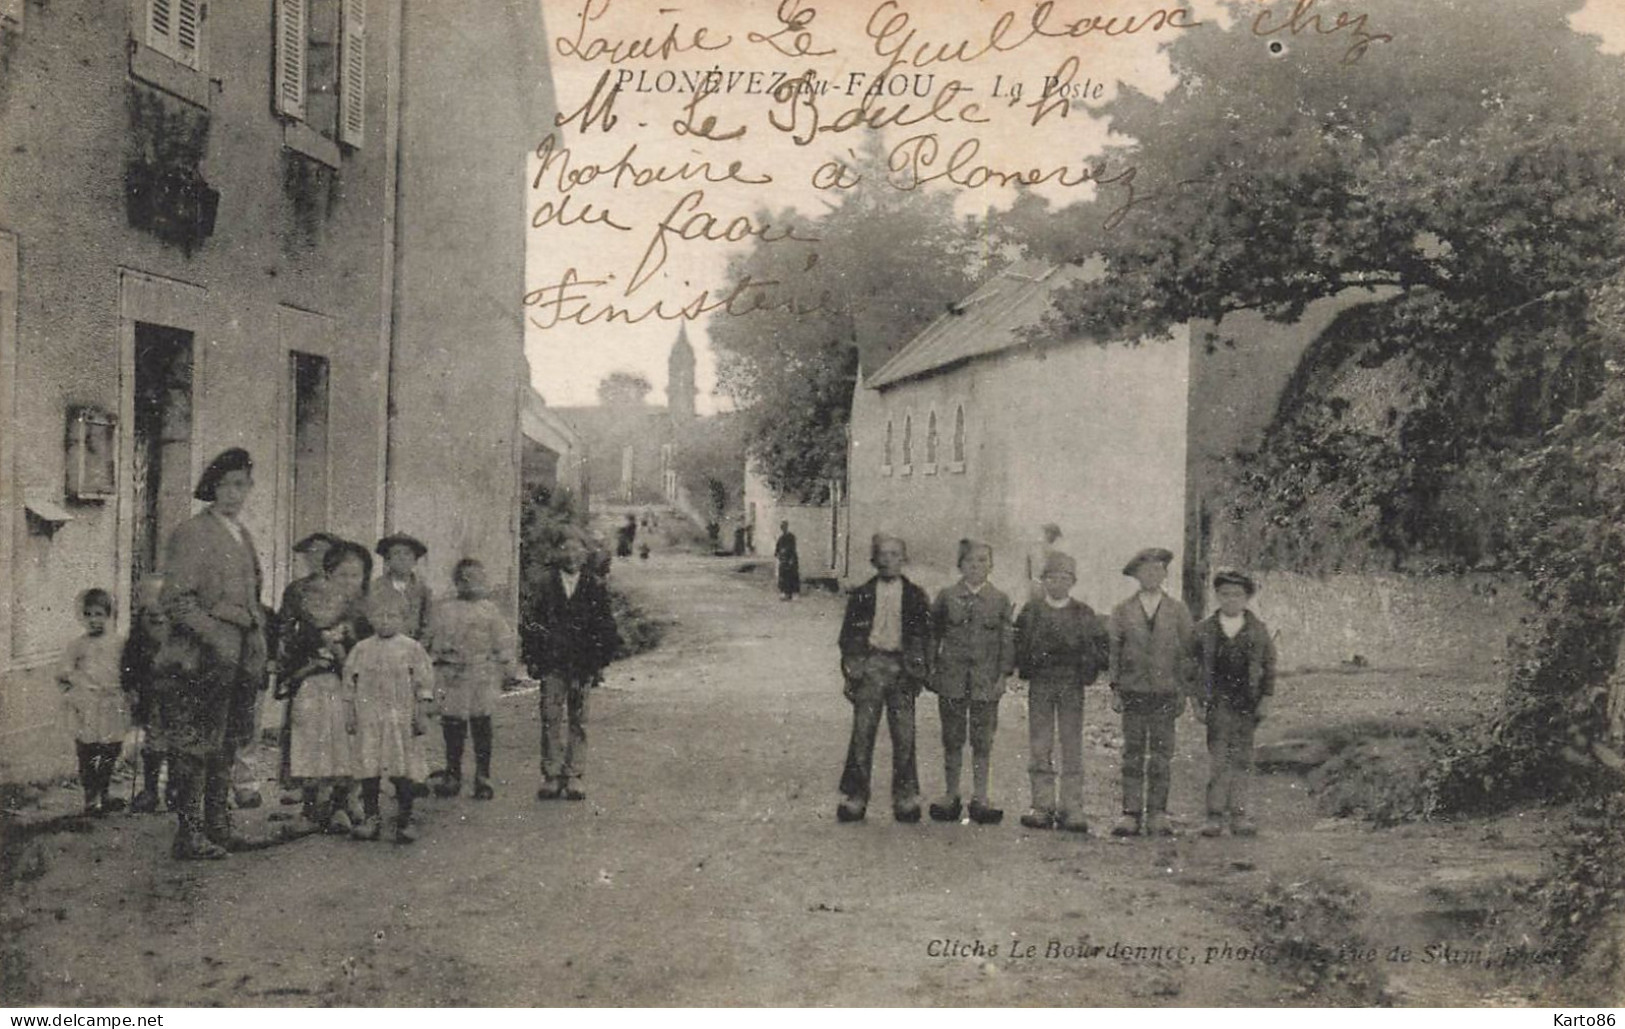 Louise Le Guilloux chez
PLONÉVEZ-du-FAOU — La Poste
M. Le Boulc'h
Notaire à Plonevez
du faou
Finistère
Cliché Le Bourdonnec, photo, rue de Siam, Brest
delcampe.net
Karto86